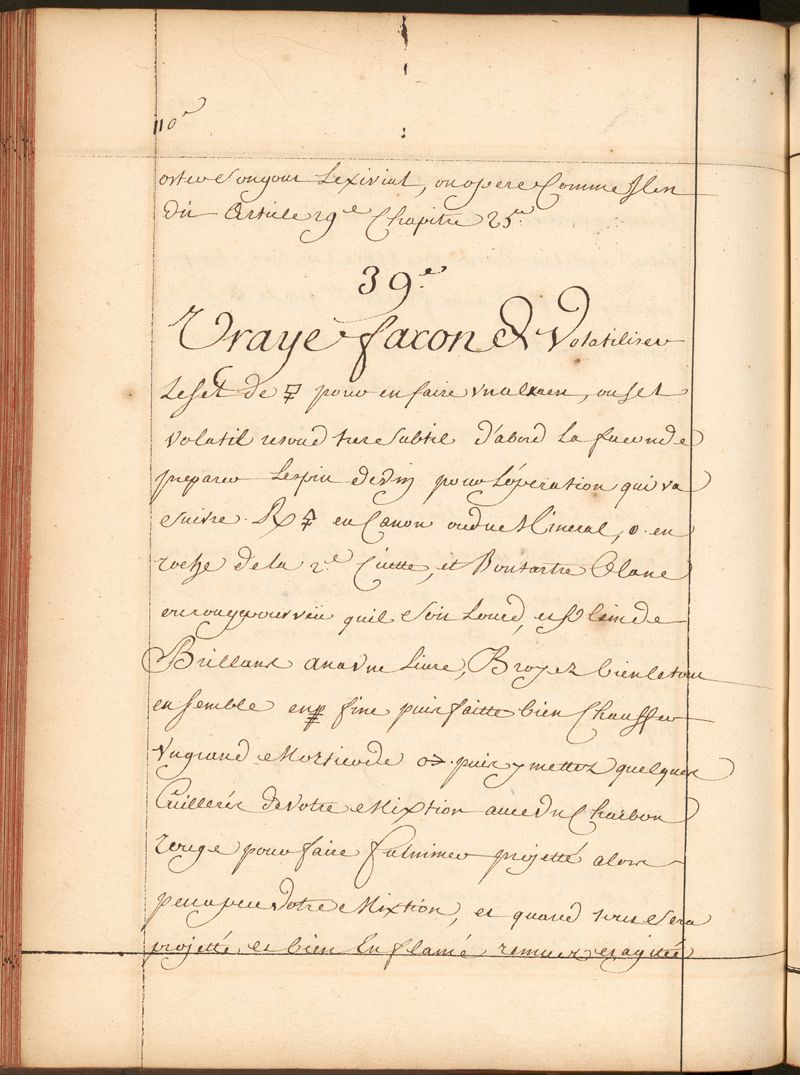 110e
oster son gout Lexivial, on opere Comme Il en
dit Article 29e Chapitre 25e
39.e
Vraye facon de Volatiliser
Le sel de pour en faire un alxaen, ou sel
volatil resoud tres subtil d'abord la facon de
preparer Lespru de vin pour Loperation qui va
suivre. Rx en Canon ou du Mineral, o. en
roche de la 2.e Cuette, et Bon tartre Blanc
ou rouge pourveu quil soit Lourd, et plein de
Brillant ana une Livre, Broyez bien le tout
ensemble en fine puis faitte bien Chauffer
Un grand Mortier de puis y mettez quelques
Cuillerés de votre Mixtion avec du Charbon
rouge pour faire fulminer projetté alors
peu a peu votre Mixtion, et quand tout sera
projetté et bien Enflamé remuez et agitté